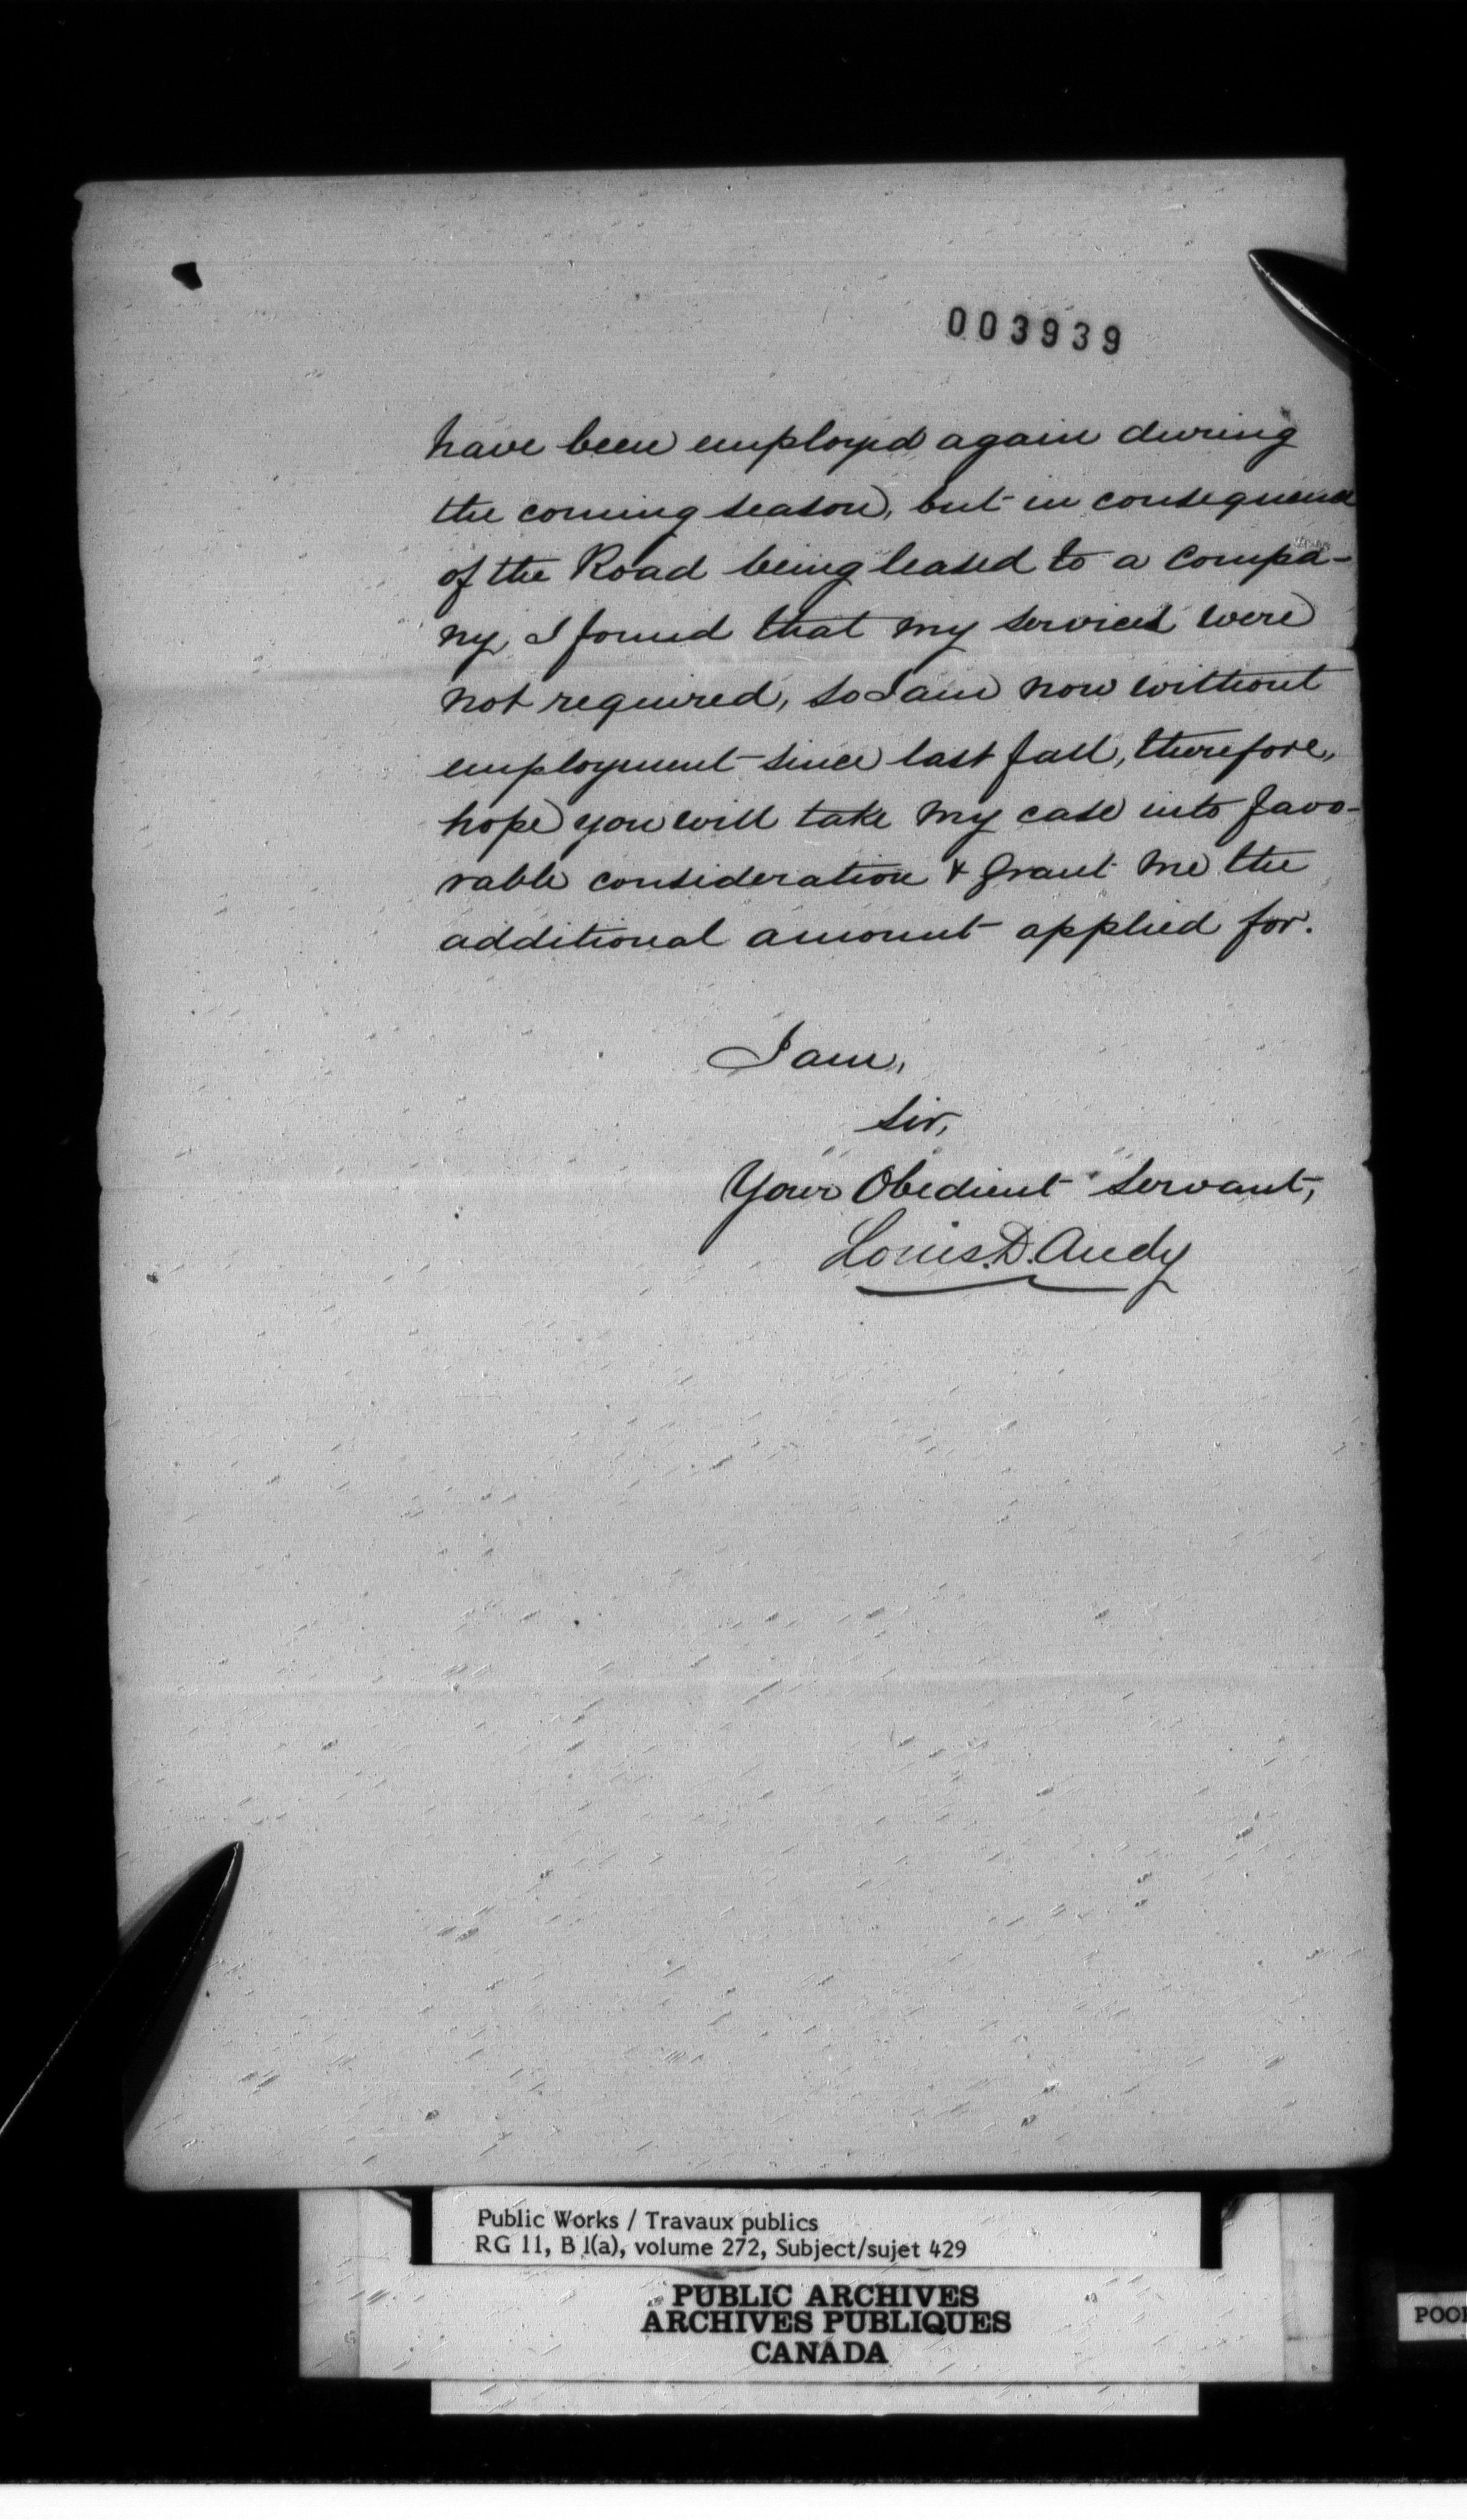 003939
have been employed again during
the coming season, but in consequence
of the Road being leased to a compa-
ny, I found that my services were
not required, so I am now without
employment since last fall, therefore,
hope you will take my case into favo-
rable consideration & grant me the
additional amount applied for.
I am,
Sir,
Your Obedient Servant,
Louis. D. Audy
Public Works / Travaux publics
RG 11, B 1(a), volume 272, Subject/sujet 429
PUBLIC ARCHIVES
ARCHIVES PUBLIQUES
CANADA